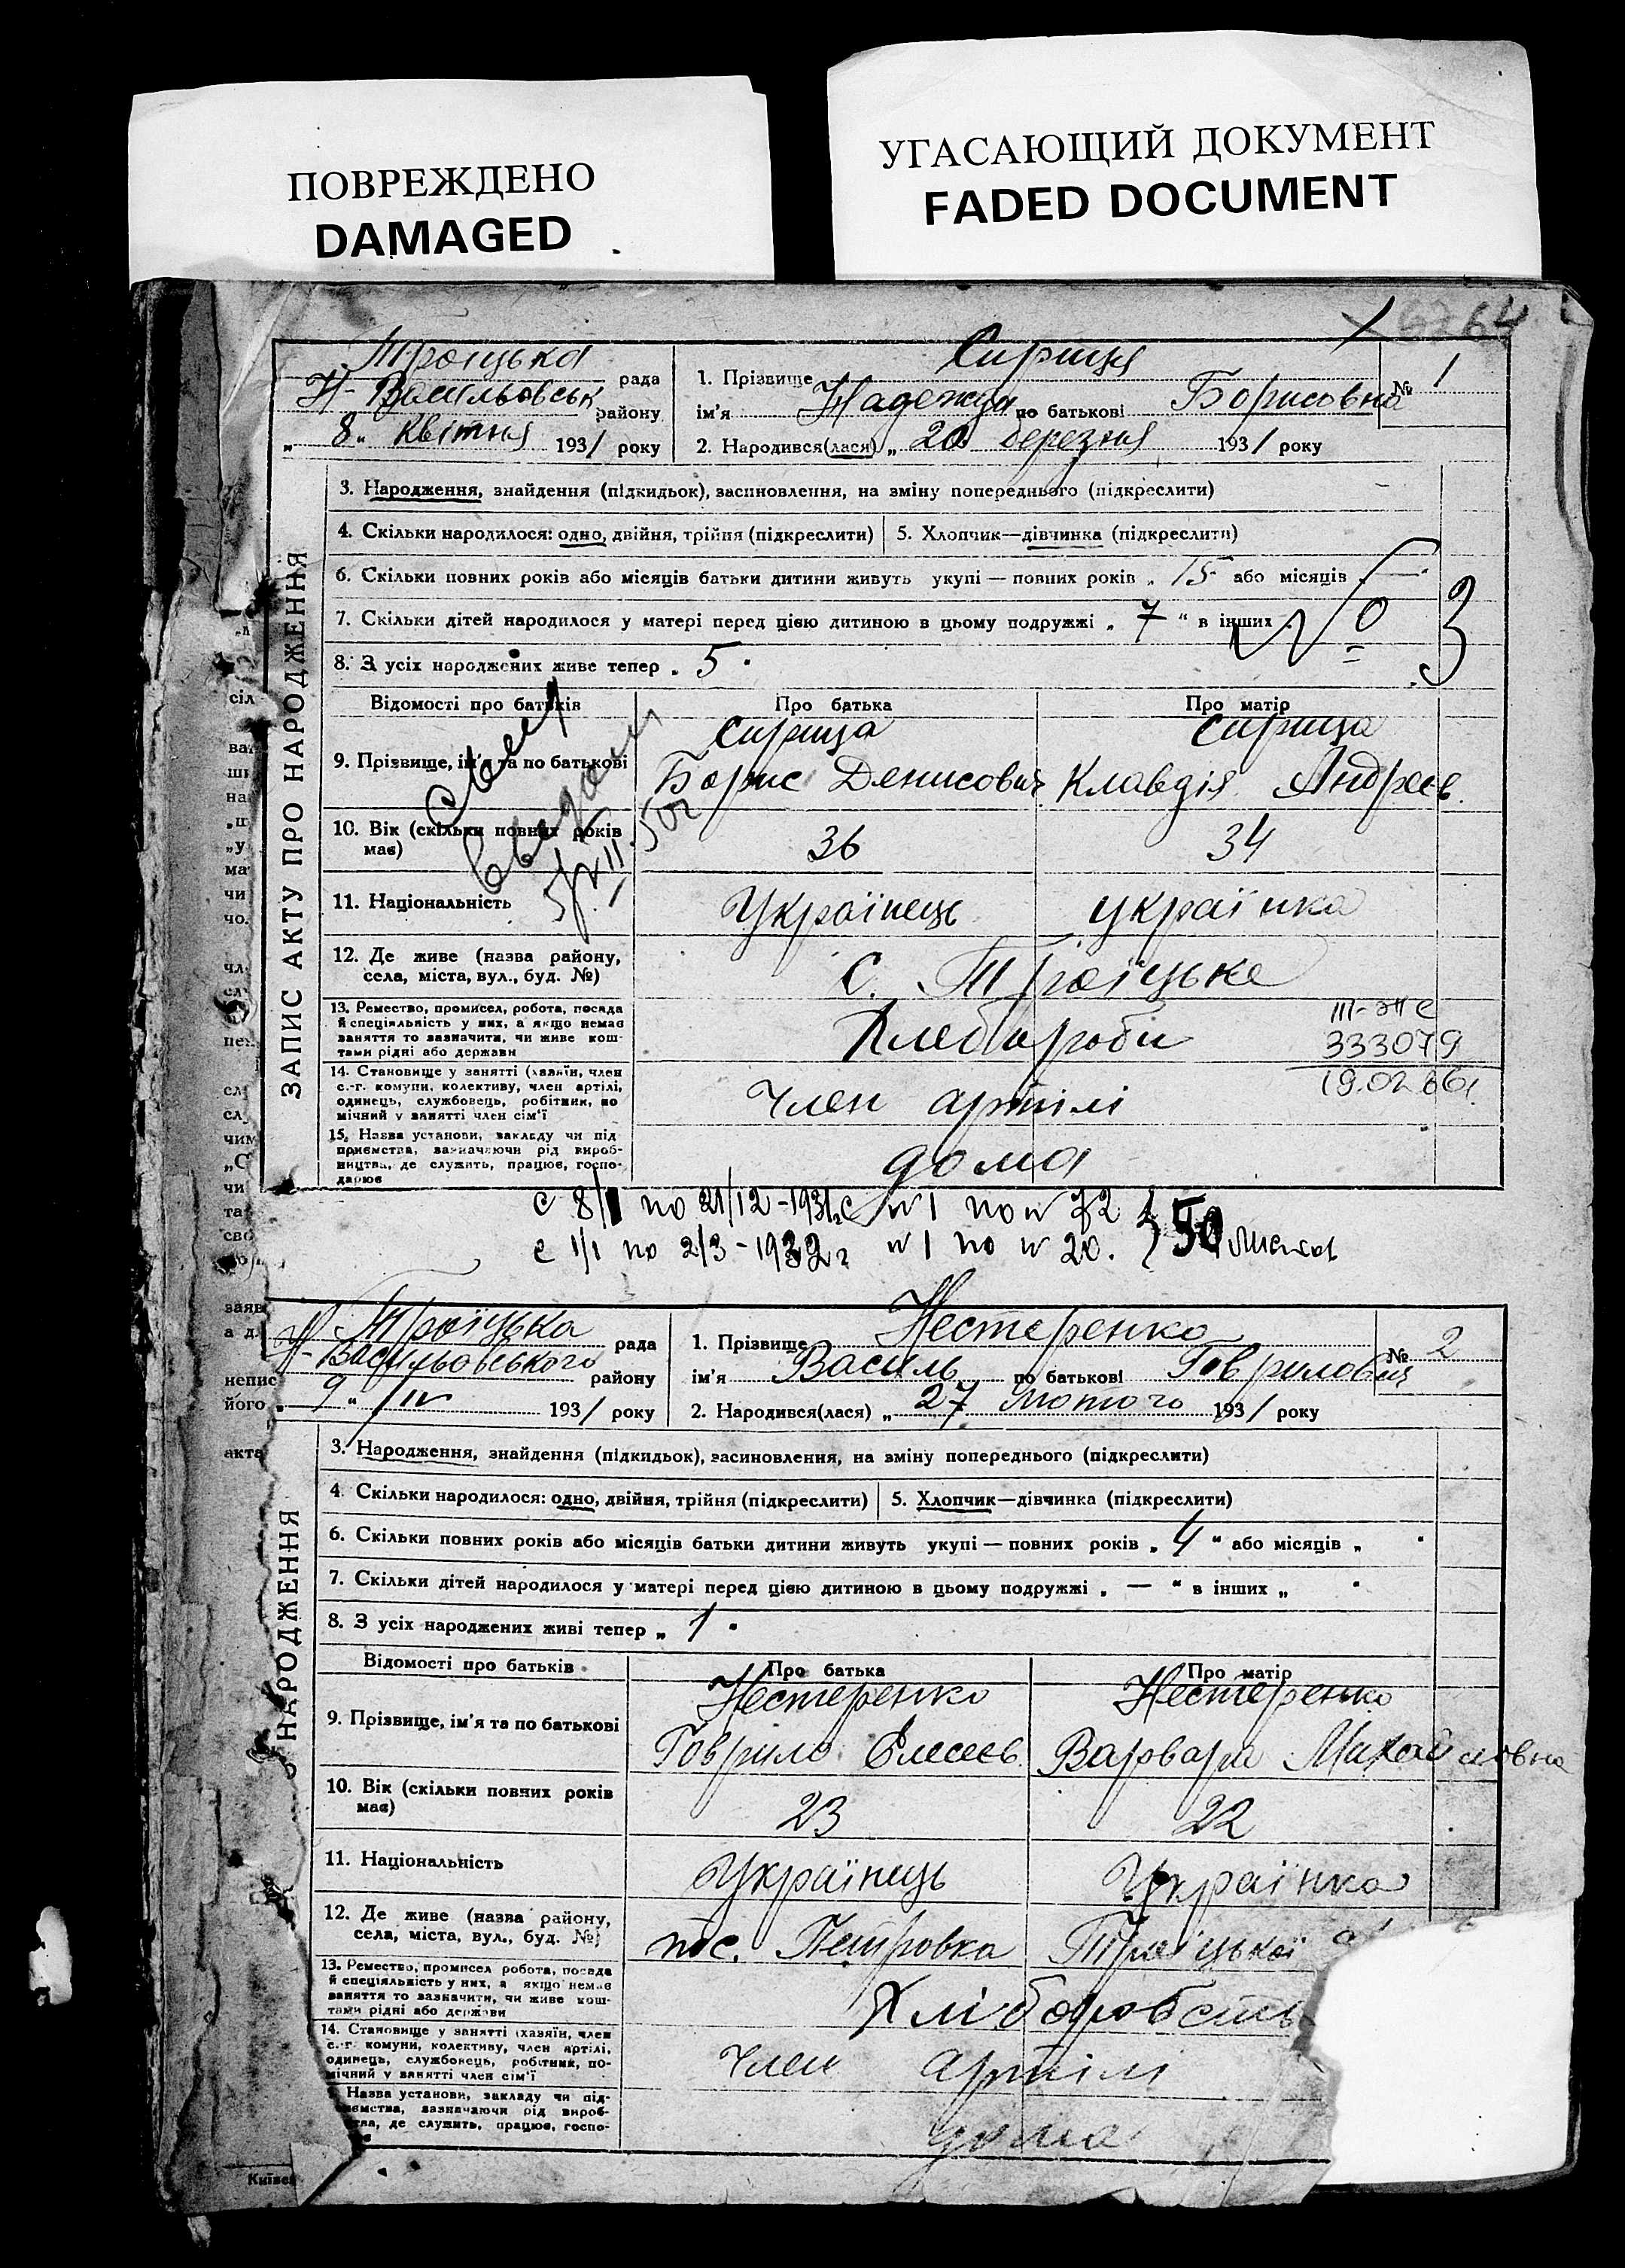 ПОВРЕЖДЕНО
DAMAGED
УГАСАЮЩИЙ ДОКУМЕНТ
FADED DOCUMENT
64
Троіцька рада
Н-Васильовськ району
„ 8 " квітня 1931 року
1. Прізвище Сириця
№ 1
ім'я Надежда по батькові Борисовна
2. Народився(лася) „ 20 березня 1931 року
ЗАПИС АКТУ ПРО НАРОДЖЕННЯ
3. Народження, знайдення (підкидьок), засиновлення, на зміну попереднього (підкреслити)
4. Скільки народилося: одно, двійня, трійня (підкреслити)
5. Хлопчик—дівчинка (підкреслити)
6. Скільки повних років або місяців батьки дитини живуть укупі — повних років „ 15 " або місяців „ —
7. Скільки дітей народилося у матері перед цією дитиною в цьому подружжі „ 7 " в інших „ 0
8. З усіх народжених живе тепер „ 5 "
3
Відомості про батьків
Про батька
Про матір
9. Прізвище, ім'я та по батькові
Сирица
Борис Денисович
Сирица
Клавдія Андреев.
10. Вік (скільки повних років має)
36
34
11. Національність
Українець
українка
12. Де живе (назва району, села, міста, вул., буд. №)
С. Троіцьке
13. Ремество, промисел, робота, посада й спеціяльність у них, а якщо немає заняття то зазначити, чи живе коштами рідні або держави
Хлебороби
III-ЖС
333079
19.02.66г.
14. Становище у занятті (хазяїн, член с.-г. комуни, колективу, член артілі, одинець, службовець, робітник, помічний у занятті член сім'ї
Член артілі
15. Назва установи, закладу чи підприємства, зазначаючи рід виробництва, де служить, працює, господарює
дома
по 21/12-1931г. с №1 по № 72
с 1/1 по 2/3-1932г №1 по № 20. } 50 листов
Троїцька рада
Н-Васильовського району
„ 9 " /IV 1931 року
1. Прізвище Нестеренко
№ 2
ім'я Василь по батькові Гаврилович
2. Народився(лася) „ 27 лютого 1931 року
НАРОДЖЕННЯ
3. Народження, знайдення (підкидьок), засиновлення, на зміну попереднього (підкреслити)
4. Скільки народилося: одно, двійня, трійня (підкреслити)
5. Хлопчик—дівчинка (підкреслити)
6. Скільки повних років або місяців батьки дитини живуть укупі — повних років „ 4 " або місяців „ "
7. Скільки дітей народилося у матері перед цією дитиною в цьому подружжі „ — " в інших „ "
8. З усіх народжених живі тепер „ 1 "
Відомості про батьків
Про батька
Про матір
9. Прізвище, ім'я та по батькові
Нестеренко
Гаврило Елесеев
Нестеренко
Варвара Михайловна
10. Вік (скільки повних років має)
23
22
11. Національність
Українець
Українка
12. Де живе (назва району, села, міста, вул., буд. №)
пос. Петровка Троїцької
13. Ремество, промисел робота, посада й спеціяльність у них, а якщо немає заняття то зазначити, чи живе коштами рідні або держави
Хліборобств
14. Становище у занятті (хазяїн, член с.-г. комуни, колективу, член артілі, одинець, службовець, робітник, помічний у занятті член сім'ї
член артілі
Назва установи, закладу чи підприємства, зазначаючи рід виробництва, де служить, працює, господарює
дома